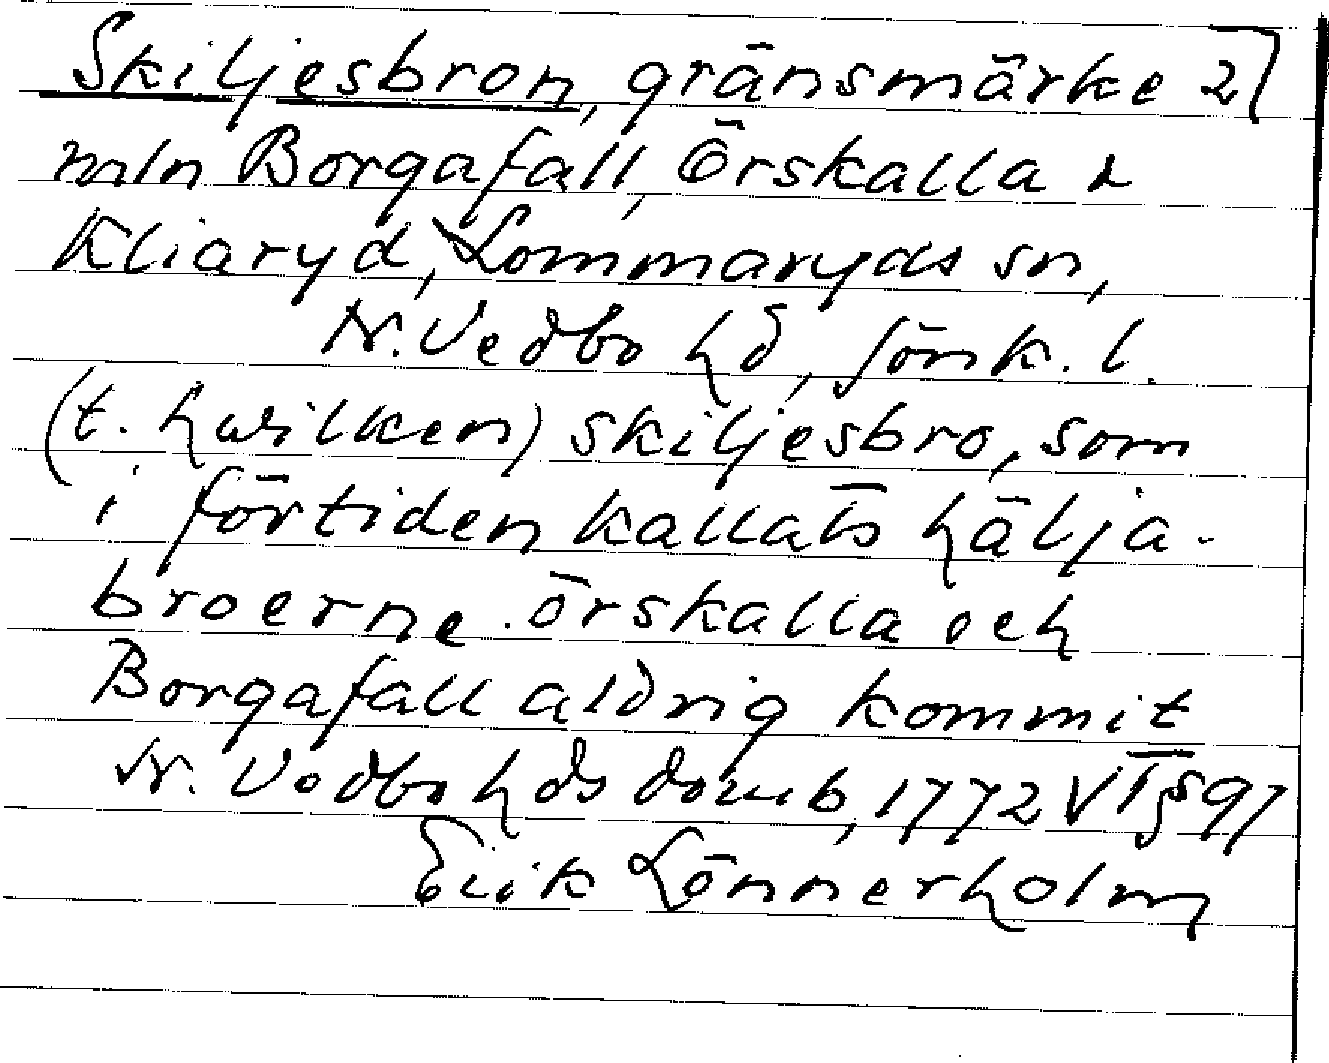 Skiljesbron, gränsmärke 2]
mln Borgafall, Örskalla &
Kliaryd, Lommaryds sn,
N. Vedbo hd, Jönk. l.
(t. hwilken) skiljesbro, som
i förtiden kallats hälja-
broerne. örskalla och
Borgafall aldrig kommit
N. Vedbo hds domb, 1772 VI § 97
Erik Lönnerholm